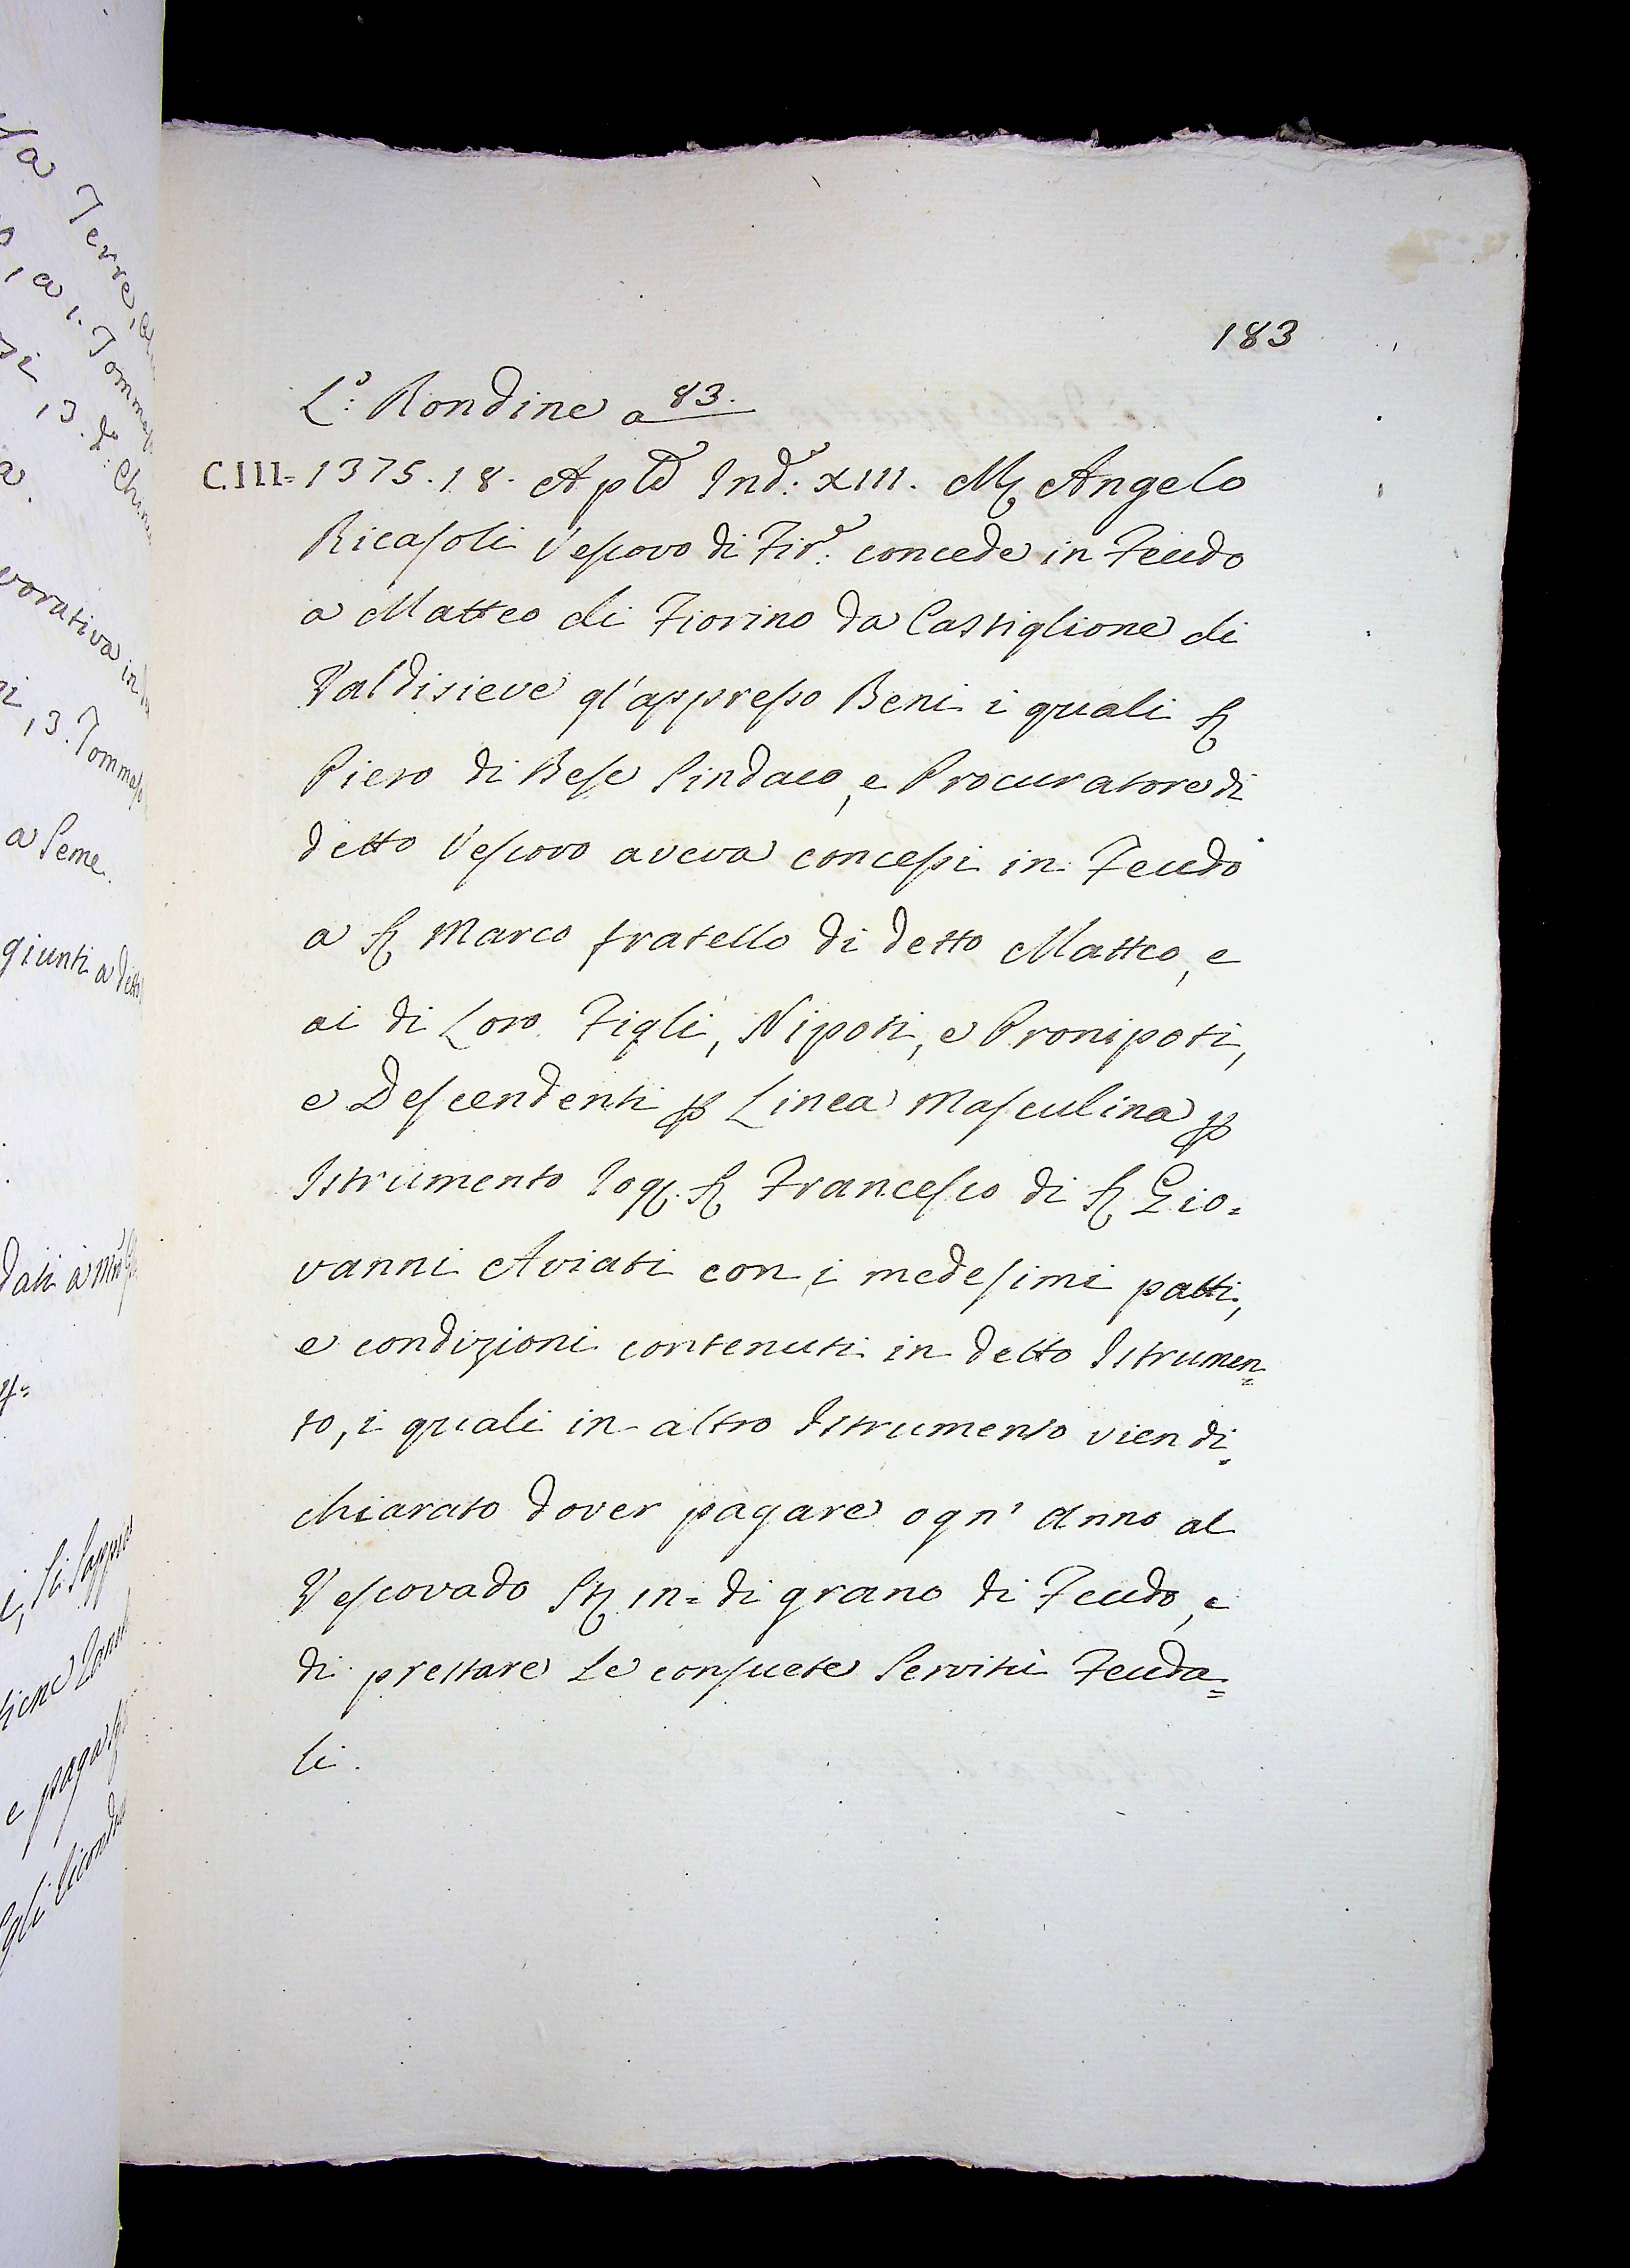 183
L.º Rondine a 83.
C.III= 1375. 18. Aple Ind.e XIII. M. Angelo
Ricasoli Vescovo di Fir.e concede in Feudo
a Matteo di Fiorino da Castiglione di
Valdisieve gl'appresso Beni i quali S.
Piero di Bese Sindaco, e Procuratore di
detto Vescovo aveva concessi in Feudo
a S. Marco fratello di detto Matteo, e
ai di Loro Figli, Nipoti, e Pronipoti,
e Descendenti p Linea Masculina p
Istrumento Rog. S. Francesco di S. Gio=
vanni Aviati con i medesimi patti,
e condizioni contenuti in detto Istrumen=
to, i quali in altro Istrumento vien di=
chiarato dover pagare ogn' Anno al
Vescovado di grano di Feudo, e
di prestare Le consuete Servitù Feuda=
li.